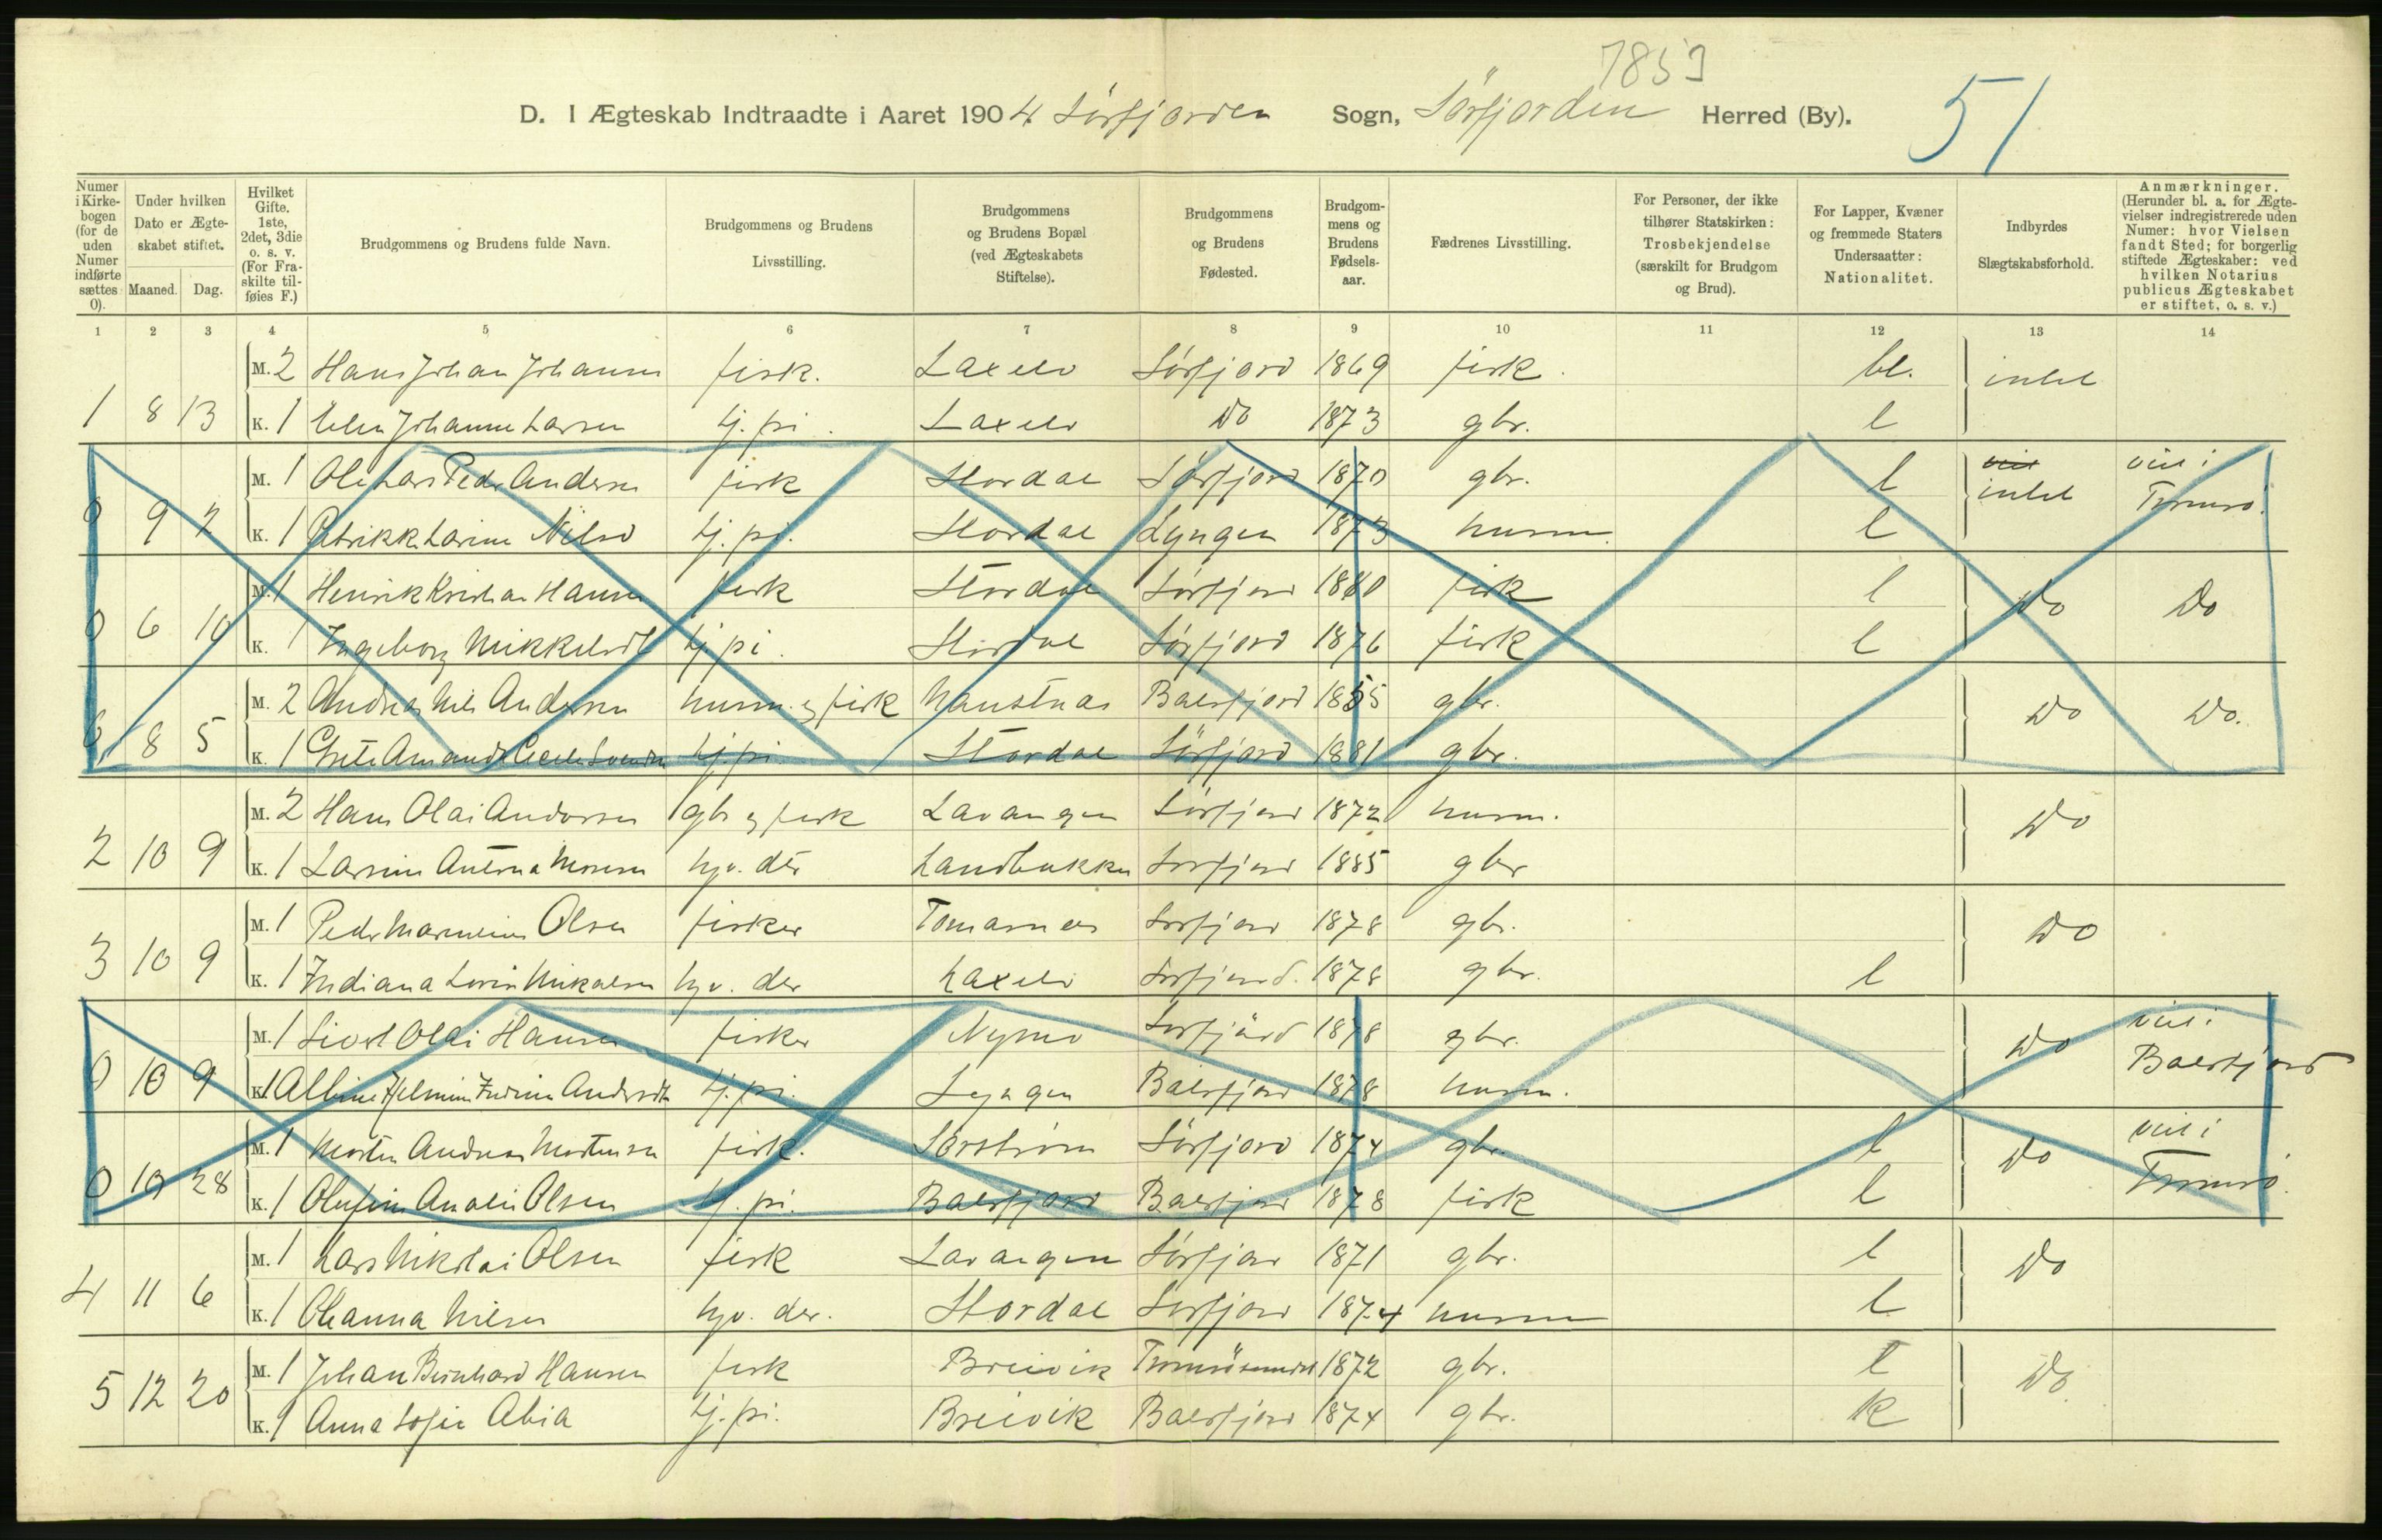 7853
D. I Ægteskab Indtraadte i Aaret 1904. Sörfjorden Sogn, Sörfjorden Herred (By). 51
Numer i Kirke-bogen (for de uden Numer indførte sættes 0).
Under hvilken Dato er Ægte-skabet stiftet.
Maaned. Dag.
Hvilket Gifte. 1ste, 2det, 3die o. s. v. (For Fra-skilte til-føies F.)
Brudgommens og Brudens fulde Navn.
Brudgommens og Brudens Livsstilling.
Brudgommens og Brudens Bopæl (ved Ægteskabets Stiftelse).
Brudgommens og Brudens Fødested.
Brudgom-mens og Brudens Fødsels-aar.
Fædrenes Livsstilling.
For Personer, der ikke tilhører Statskirken: Trosbekjendelse (særskilt for Brudgom og Brud).
For Lapper, Kvæner og fremmede Staters Undersaatter: Nationalitet.
Indbyrdes Slægtskabsforhold.
Anmærkninger. (Herunder bl. a. for Ægte-vielser indregistrerede uden Numer: hvor Vielsen fandt Sted; for borgerlig stiftede Ægteskaber: ved hvilken Notarius publicus Ægteskabet er stiftet, o. s. v.)
1 2 3 4 5 6 7 8 9 10 11 12 13 14
M. 2 Hans Johan Johansen fisk. Laxelv Sörfjord 1869 fisk. bl. intet
1 8 13 K. 1 Elen Johanne Larsen tj. pi. Laxelv Do 1873 gbr. l
M. 1 Ole Lars Peder Andersen fisk Stordal Sörfjord 1870 gbr. l intet viet i
0 9 2 K. 1 Petrikke Larine Nilsd tj. pi. Stordal Lyngen 1873 husm. l Tromsö.
M. 1 Henrik Kristian Hansen fisk Stordal Sörfjord 1880 fisk l Do Do
0 6 10 K. 1 Ingeborg Mikkelsdt tj. pi. Stordal Sörfjord 1876 fisk l
M. 2 Andreas Nils Andersen husm. og fisk Naustnæs Balsfjord 1855 gbr. Do Do.
0 8 5 K. 1 Grete Amanda Cecelie Svendsen tj. pi. Stordal Sörfjord 1881 gbr.
M. 2 Hans Olai Andersen gbr og fisk Lavangen Sörfjord 1872 husm. Do
2 10 9 K. 1 Larsine Antona Monsen hjv. dtr Landbukken Sorfjord 1885 gbr
M. 1 Peder Marenius Olsen fisker Tomasnes Sorfjord 1878 gbr. Do
3 10 9 K. 1 Indiana Lovise Mikalsen hjv. dtr Laxelv Sorfjord. 1878 gbr. l
M. 1 Sivert Olai Hansen fisker Nymo Sorfjord 1878 gbr. Do viet i
0 10 9 K. 1 Albine Hjelmine Indrine Andersdtr tj. pi. Lyngen Balsfjord 1878 husm. Balsfjord
M. 1 Morten Andreas Mortensen fisk. Sörström Sörfjord 1874 gbr. l Do viet i
0 10 28 K. 1 Olufine Analie Olsen tj. pi. Balsfjord Balsfjord 1878 fisk l Tromsö.
M. 1 Lars Nikolai Olsen fisk Lavangen Sörfjord 1871 gbr. l Do
4 11 6 K. 1 Oleanna Nilsen hjv. dtr. Stordal Sorfjord 1874 husm l
M. 1 Johan Bernhard Hansen fisk Breivik Tromsösundet 1872 gbr. l Do
5 12 20 K. 1 Anna Sofie Abia tj. pi. Breivik Balsfjord 1874 gbr. k